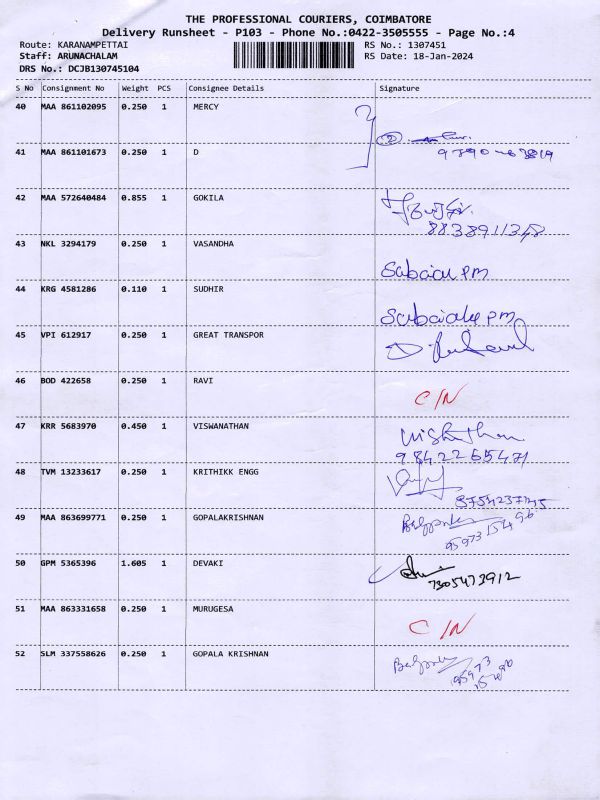 THE PROFESSIONAL COURIERS, COIMBATORE
Delivery Runsheet - P103 - Phone No.:0422-3505555 - Page No.:4
Route: KARANAMPETTAI RS No.: 1307451
Staff: ARUNACHALAM RS Date: 18-Jan-2024
DRS No.: DCJB130745104
S No Consignment No Weight PCS Consignee Details Signature
40 MAA 861102095 0.250 1 MERCY
41 MAA 861101673 0.250 1 D
42 MAA 572640484 0.855 1 GOKILA
8838911348
43 NKL 3294179 0.250 1 VASANDHA
PM
44 KRG 4581286 0.110 1 SUDHIR
PM
45 VPI 612917 0.250 1 GREAT TRANSPOR
46 BOD 422658 0.250 1 RAVI
C/N
47 KRR 5683970 0.450 1 VISWANATHAN
9842265471
48 TVM 13233617 0.250 1 KRITHIKK ENGG
49 MAA 863699771 0.250 1 GOPALAKRISHNAN
50 GPM 5365396 1.605 1 DEVAKI
7305473912
51 MAA 863331658 0.250 1 MURUGESA
C/N
52 SLM 337558626 0.250 1 GOPALA KRISHNAN